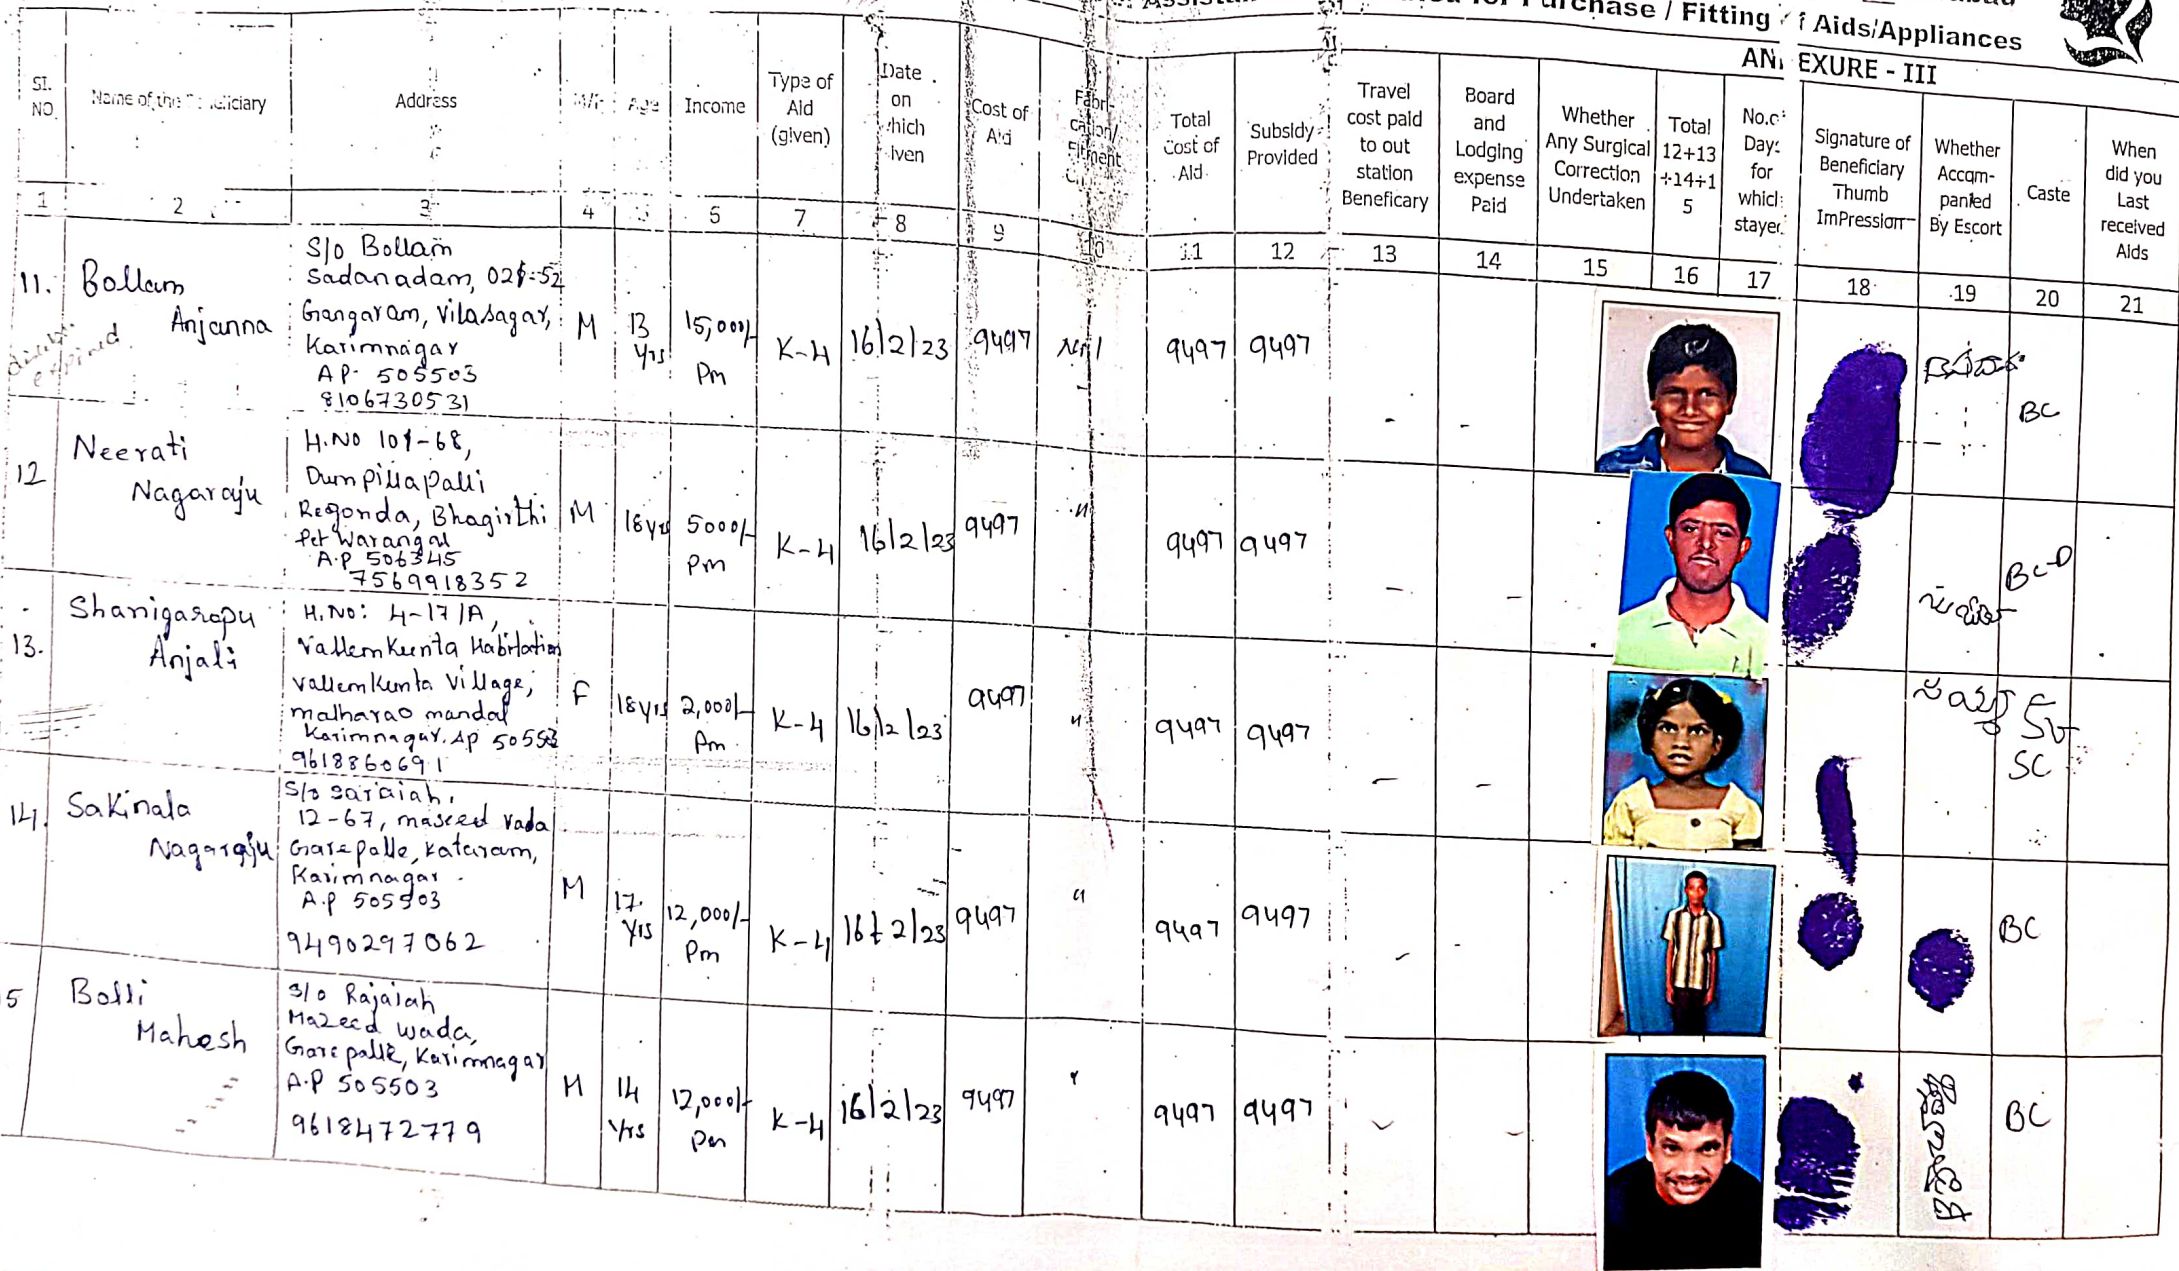 Purchase / Fitting of Aids/Appliances
ANNEXURE - III
Sl. NO. Name of the Beneficiary Address M/F Age Income Type of Aid (given) Date on which given Cost of Aid Fabrication/ Fitment Total Cost of Aid Subsidy Provided Travel cost paid to out station Beneficary Board and Lodging expense Paid Whether Any Surgical Correction Undertaken Total 12+13 +14+1 5 No.of Days for which stayed Signature of Beneficiary Thumb ImPression Whether Accom- panied By Escort Caste When did you Last received Aids
1 2 3 4 5 6 7 8 9 10 11 12 13 14 15 16 17 18 19 20 21
11. Bollam Anjanna
S/o Bollam
Sadanadam,
Gangaram, Vilasagar,
Karimnagar
AP- 505503
8106730531
M 13 Yrs 15,000/- Pm K-4 16/2/23 9497 Nil 9497 9497 - - BC
expired
12 Neerati Nagaraju
H.No 101-68,
Dumpillapalli
Regonda, Bhagirthi
Pet Warangal
A.P 506345
7569918352
M 18yrs 5000/- Pm K-4 16/2/23 9497 " 9497 9497 - - BC-D
13. Shanigarapu Anjali
H.No: 4-17/A,
Vallemkunta Habitation
Vallemkunta Village,
malharao mandal
Karimnagar. AP 50553
9618860691
F 18yrs 2,000/- Pm K-4 16/2/23 9497 " 9497 9497 - - SC
14. Sakinala Nagaraju
S/o Saraiah,
12-67, maseed vada
Garepalle, Kataram,
Karimnagar
A.P 505503
9490297062
M 17. Yrs 12,000/- Pm K-4 16/2/23 9497 " 9497 9497 - - BC
5 Bolli Mahesh
S/o Rajaiah
Mazeed wada,
Garepalle, Karimnagar
A.P 505503
9618472779
M 14 Yrs 12,000/- Pm K-4 16/2/23 9497 " 9497 9497 - - BC